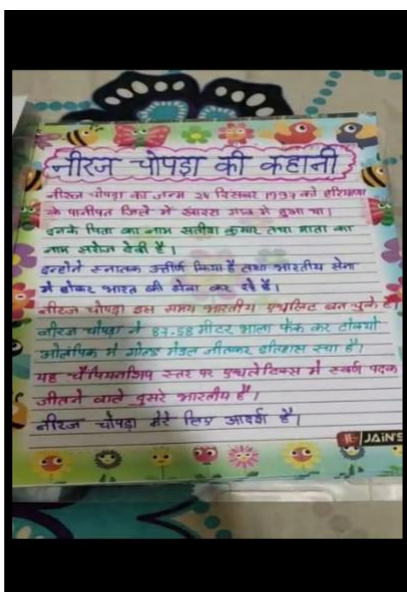 नीरज चोपड़ा की कहानी
नीरज चोपड़ा का जन्म 24 दिसंबर 1997 को हरियाणा
के पानीपत जिले में खंडरा गाव में हुआ था।
इनके पिता का नाम सतीश कुमार तथा माता का
नाम सरोज देवी है।
इन्होंने स्नातक उत्तीर्ण किया है तथा भारतीय सेना
में होकर भारत की सेवा कर रहे हैं।
नीरज चोपड़ा इस समय भारतीय एथलिट बन चुके है।
नीरज चोपड़ा ने 87.58 मीटर भाला फेंक कर टोक्यो
ओलंपिक में गोल्ड मेडल जीतकर इतिहास रचा है।
यह चैंपियनशिप स्तर पर एथलेटिक्स में स्वर्ण पदक
जीतने वाले दुसरे भारतीय है।
नीरज चोपड़ा मेरे लिए आदर्श है।
JAiN'S